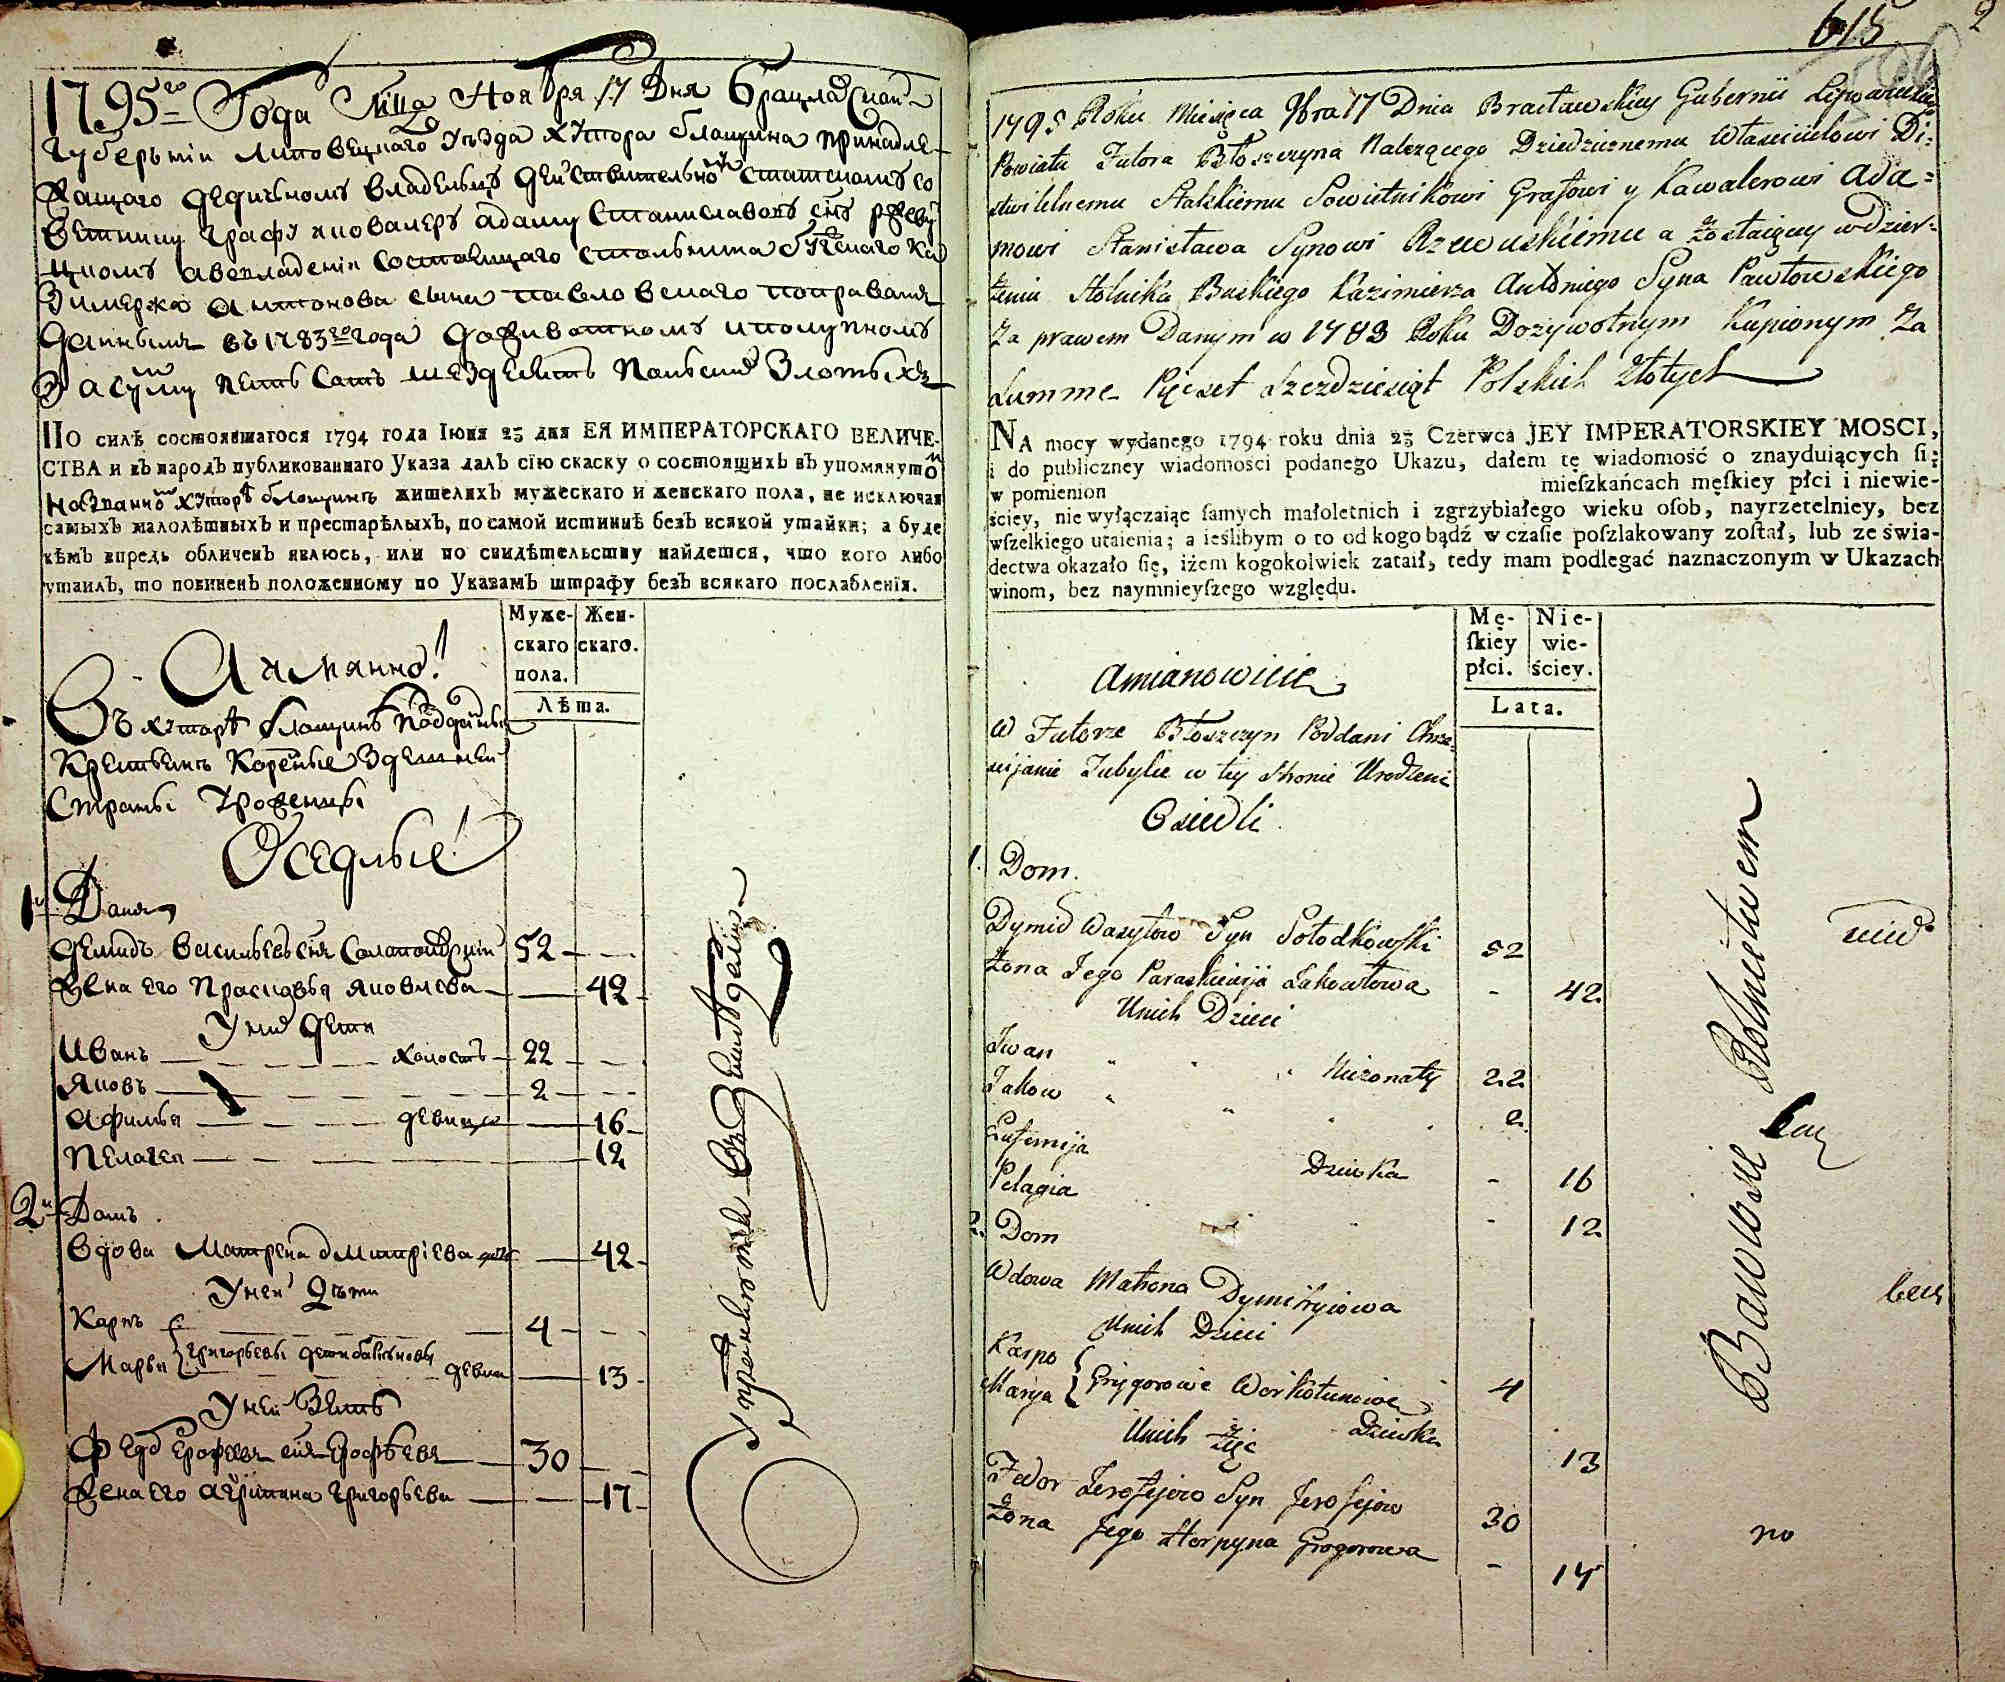 1795го Года Мца Ноября 17 Дня Брацлавской
Губерънiи Липовецкаго Уъзда хутора Блощина принадле-
жащаго дедичномъ владелцъ действительно статскомъ со
ветнику графу и ковалеръ адаму Станиславовъ снъ ржеву
цкомъ авовладенiи состоящаго столника бускаго Ка
зимержа антонова сына павловскаго поправамъ
даннымъ въ 1783го года доживотномъ и покупномъ
За суму петь сатъ шездесятъ полскихъ злотыхъ
ПО силѣ состоявшагося 1794 года Iюня 23 дня ЕЯ ИМПЕРАТОРСКАГО ВЕЛИЧЕ-
СТВА и въ народъ публикованнаго Указа далъ сiю скаску о состоящихъ въ упомянутом
названно хуторѣ блощинъ жителяхъ мужескаго и женскаго пола, не исключая
самыхъ малолѣтныхъ и престарѣлыхъ, по самой истиннѣ безъ всякой утайки; а буде
кѣмъ впредь обличенъ явлюсь, или по свидѣтельству найдется, что кого либо
утаилъ, то повиненъ положенному по Указамъ штрафу безъ всякаго послабленiя.
Муже- Жен-
скаго скаго.
пола.
Лѣта.
А имянно!
Въ хуторѣ блощинъ Подданые
Крестьянъ Кореные Здешней
Страны Уроженцы
Оседлые!
1й Домъ
демидъ васильевъ снъ Солотковский 52
жена его Прасковья яковлева 42
У них дети
Иванъ холостъ 22
Яковъ 2
афимья девки 16
пелагея 12
2й Домъ
вдова Матрена дмитрiева 42
У ней дъти
Карпъ 4
Марья Григорьевы дети девка 13
У ней Зять
Федо Ерофеевъ снъ Ерофѣевъ 30
Жена его агрипина григорьева 17
615
2
1795 Roku Miesięca 9bra 17 Dnia Bracławskiey Gubernii Lipowieckiego
Powiatu Futora Błoszczyna Nalezącego Dziedzicznemu Właścicielowi Di:
stwitelnemu Statskiemu Sowietnikowi Grafowi y Kawalerowi Ada=
mowi Stanisława Synowi Rzewuskiemu a zostaiący w dzier-
żeniu Stolnika Buskiego Kazimierza Antoniego Syna Pawłowskiego
Za prawem Danym w 1783 Roku Dożywotnym Kupionym Za
Summe Pięcset Szezdziesiąt Polskich Złotych
NA mocy wydanego 1794 roku dnia 23 Czerwca JEY IMPERATORSKIEY MOSCI,
i do publiczney wiadomości podanego Ukazu, dałem tę wiadomość o znayduiących ſię
w pomienion mieſzkańcach męſkiey płci i niewie-
ściey, nie wyłączaiąc ſamych małoletnich i zgrzybiałego wieku oſob, nayrzetelniey, bez
wſzelkiego utaienia; a ieślibym o to od kogo bądź w czaſie poſzlakowany został, lub ze świa-
dectwa okazało się, iżem kogokolwiek zataił, tedy mam podlegać naznaczonym w Ukazach
winom, bez naymnieyſzego względu.
Mę- Nie-
ſkiey wie-
płci. ściey.
Lata.
Amianowicie
W Futorze Błoszczyn Poddani Chrze=
scijanie Tubylce w tey stronie Urodzeni
Osiedli
1. Dom.
Dymid Wasylow Syn Sołodkowski 52
Żona Jego Paraskiewija Jakowłowa - 42
U nich Dzieci
Iwan Nieżonaty 22
Jakow 2
Eufemija Dziewka - 16
Pelagia - 12
2. Dom
Wdowa Matrona Dymitryiowa
U nich Dzieci
Karpo 4
Marya Grygorowie Dziewka 13
U nich Zięć
Fedor Jerofejow Syn Jerofejow 30
Żona Jego Horpyna Grogorowa - 17
no